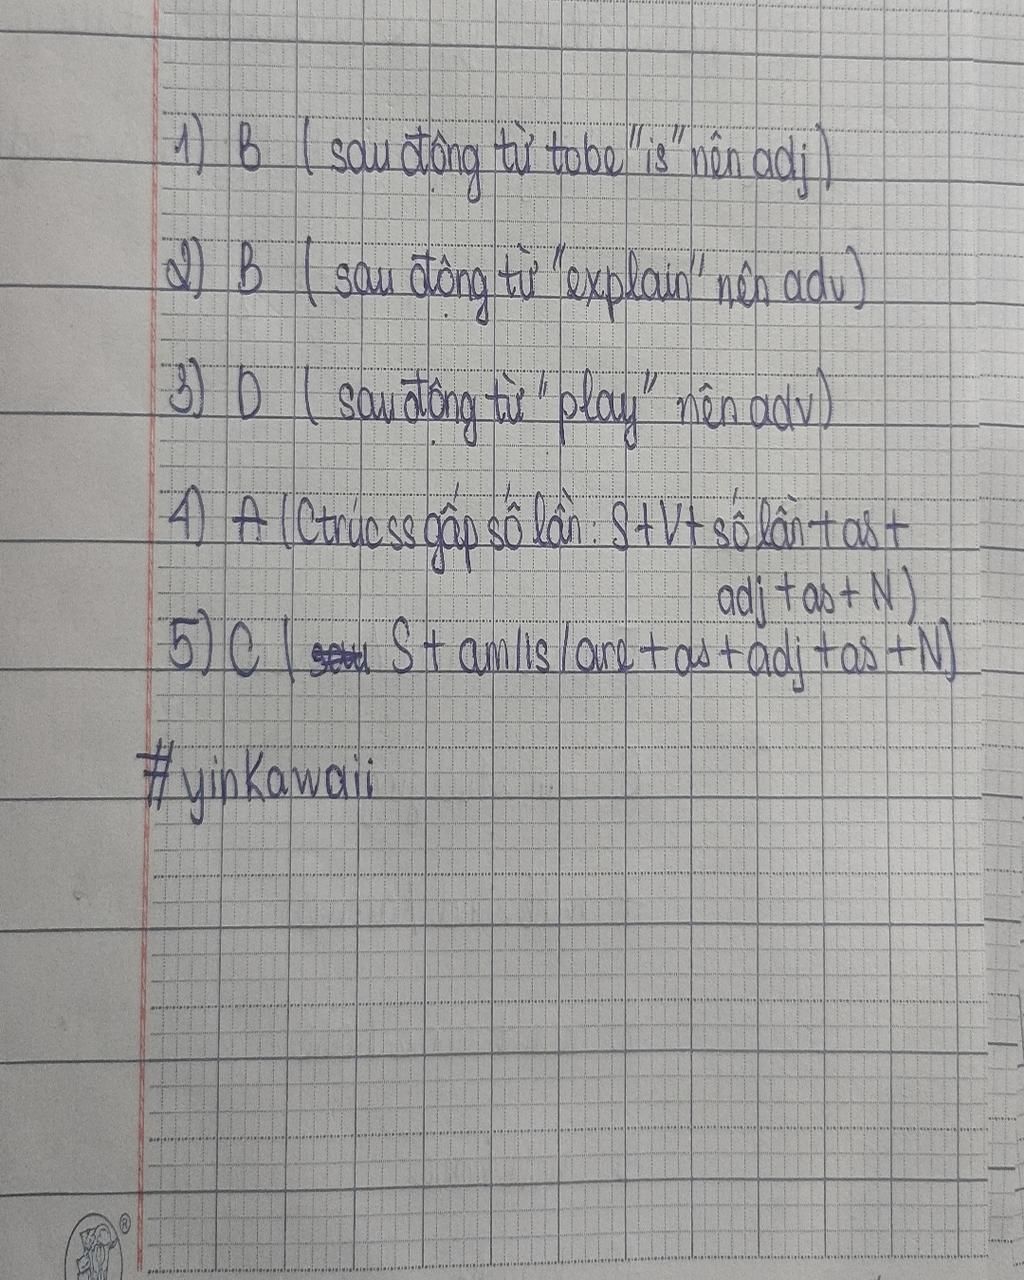 1) B ( sau động từ tobe "is" nên adj)
2) B ( sau động từ "explain" nên adv)
3) D ( sau động từ "play" nên adv)
4) A (Ctrúc ss gấp số lần: S+V+ số lần + as +
adj + as + N)
5) C ( S + am/is/are + as + adj + as + N)
#yinkawaii
®